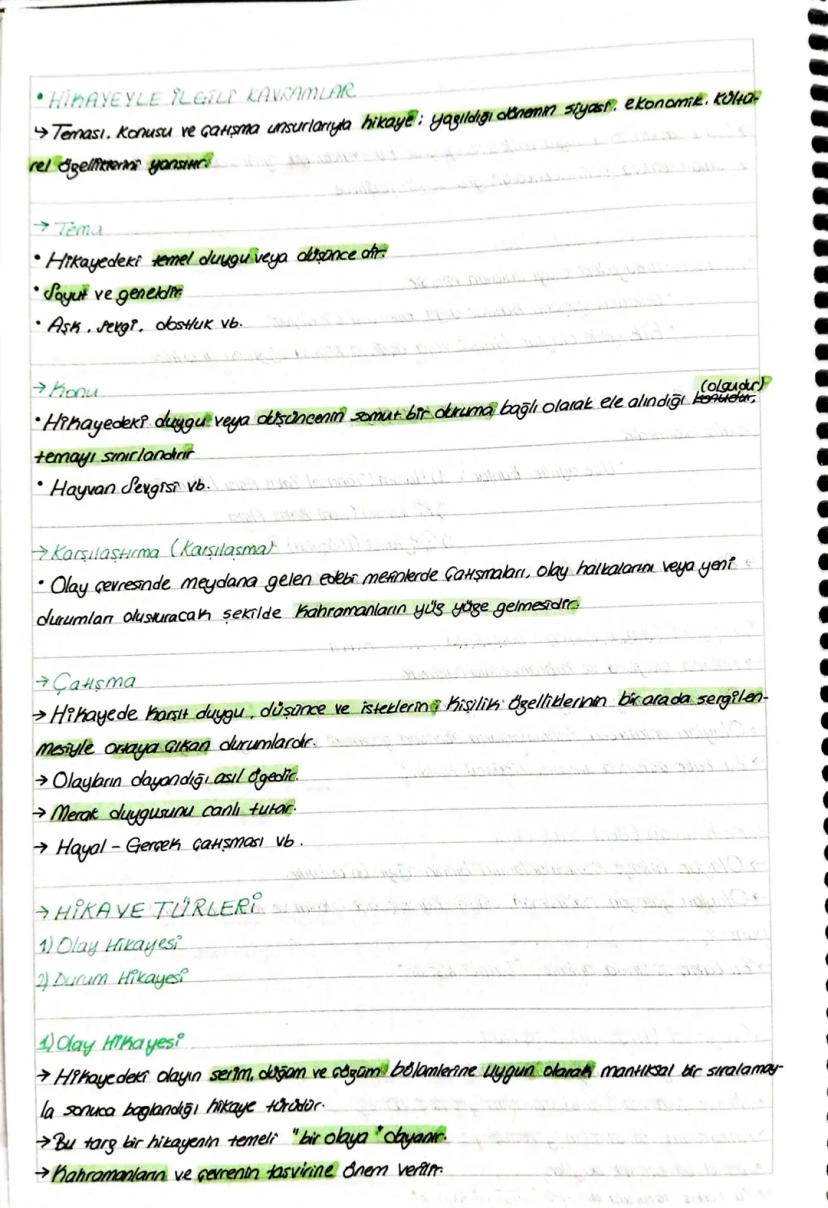 • HİKAYEYLE İLGİLİ KAVRAMLAR
↳ Teması, konusu ve çatışma unsurlarıyla hikaye; yazıldığı dönemin siyasi, ekonomik, kültü-
rel özelliklerini yansıtır.
→ Tema
• Hikayedeki temel duygu veya düşünce dir.
• Soyut ve geneldir.
• Aşk, sevgi, dostluk vb.
→ Konu
(olgudur)
• Hikayedeki duygu veya düşüncenin somut bir duruma bağlı olarak ele alındığı konudur,
temayı sınırlandırır
• Hayvan Sevgisi vb.
→ Karşılaştırma (Karşılaşma)
• Olay çevresinde meydana gelen edebi metinlerde çatışmaları, olay halkalarını veya yeni
durumları oluşturacak şekilde kahramanların yüz yüze gelmesidir.
→ Çatışma
→ Hikayede karşıt duygu, düşünce ve isteklerin; kişilik özelliklerinin bir arada sergilen-
mesiyle ortaya çıkan durumlardır.
→ Olayların dayandığı asıl ögedir.
→ Merak duygusunu canlı tutar.
→ Hayal - Gerçek çatışması vb.
→ HİKAYE TÜRLERİ
1) Olay Hikayesi
2) Durum Hikayesi
1) Olay Hikayesi
→ Hikayedeki olayın serim, düğüm ve çözüm bölümlerine uygun olarak mantıksal bir sıralamay-
la sonuca bağlandığı hikaye türüdür.
→ Bu tarz bir hikayenin temeli "bir olaya" dayanır.
→ Kahramanların ve çevrenin tasvirine önem verilir.